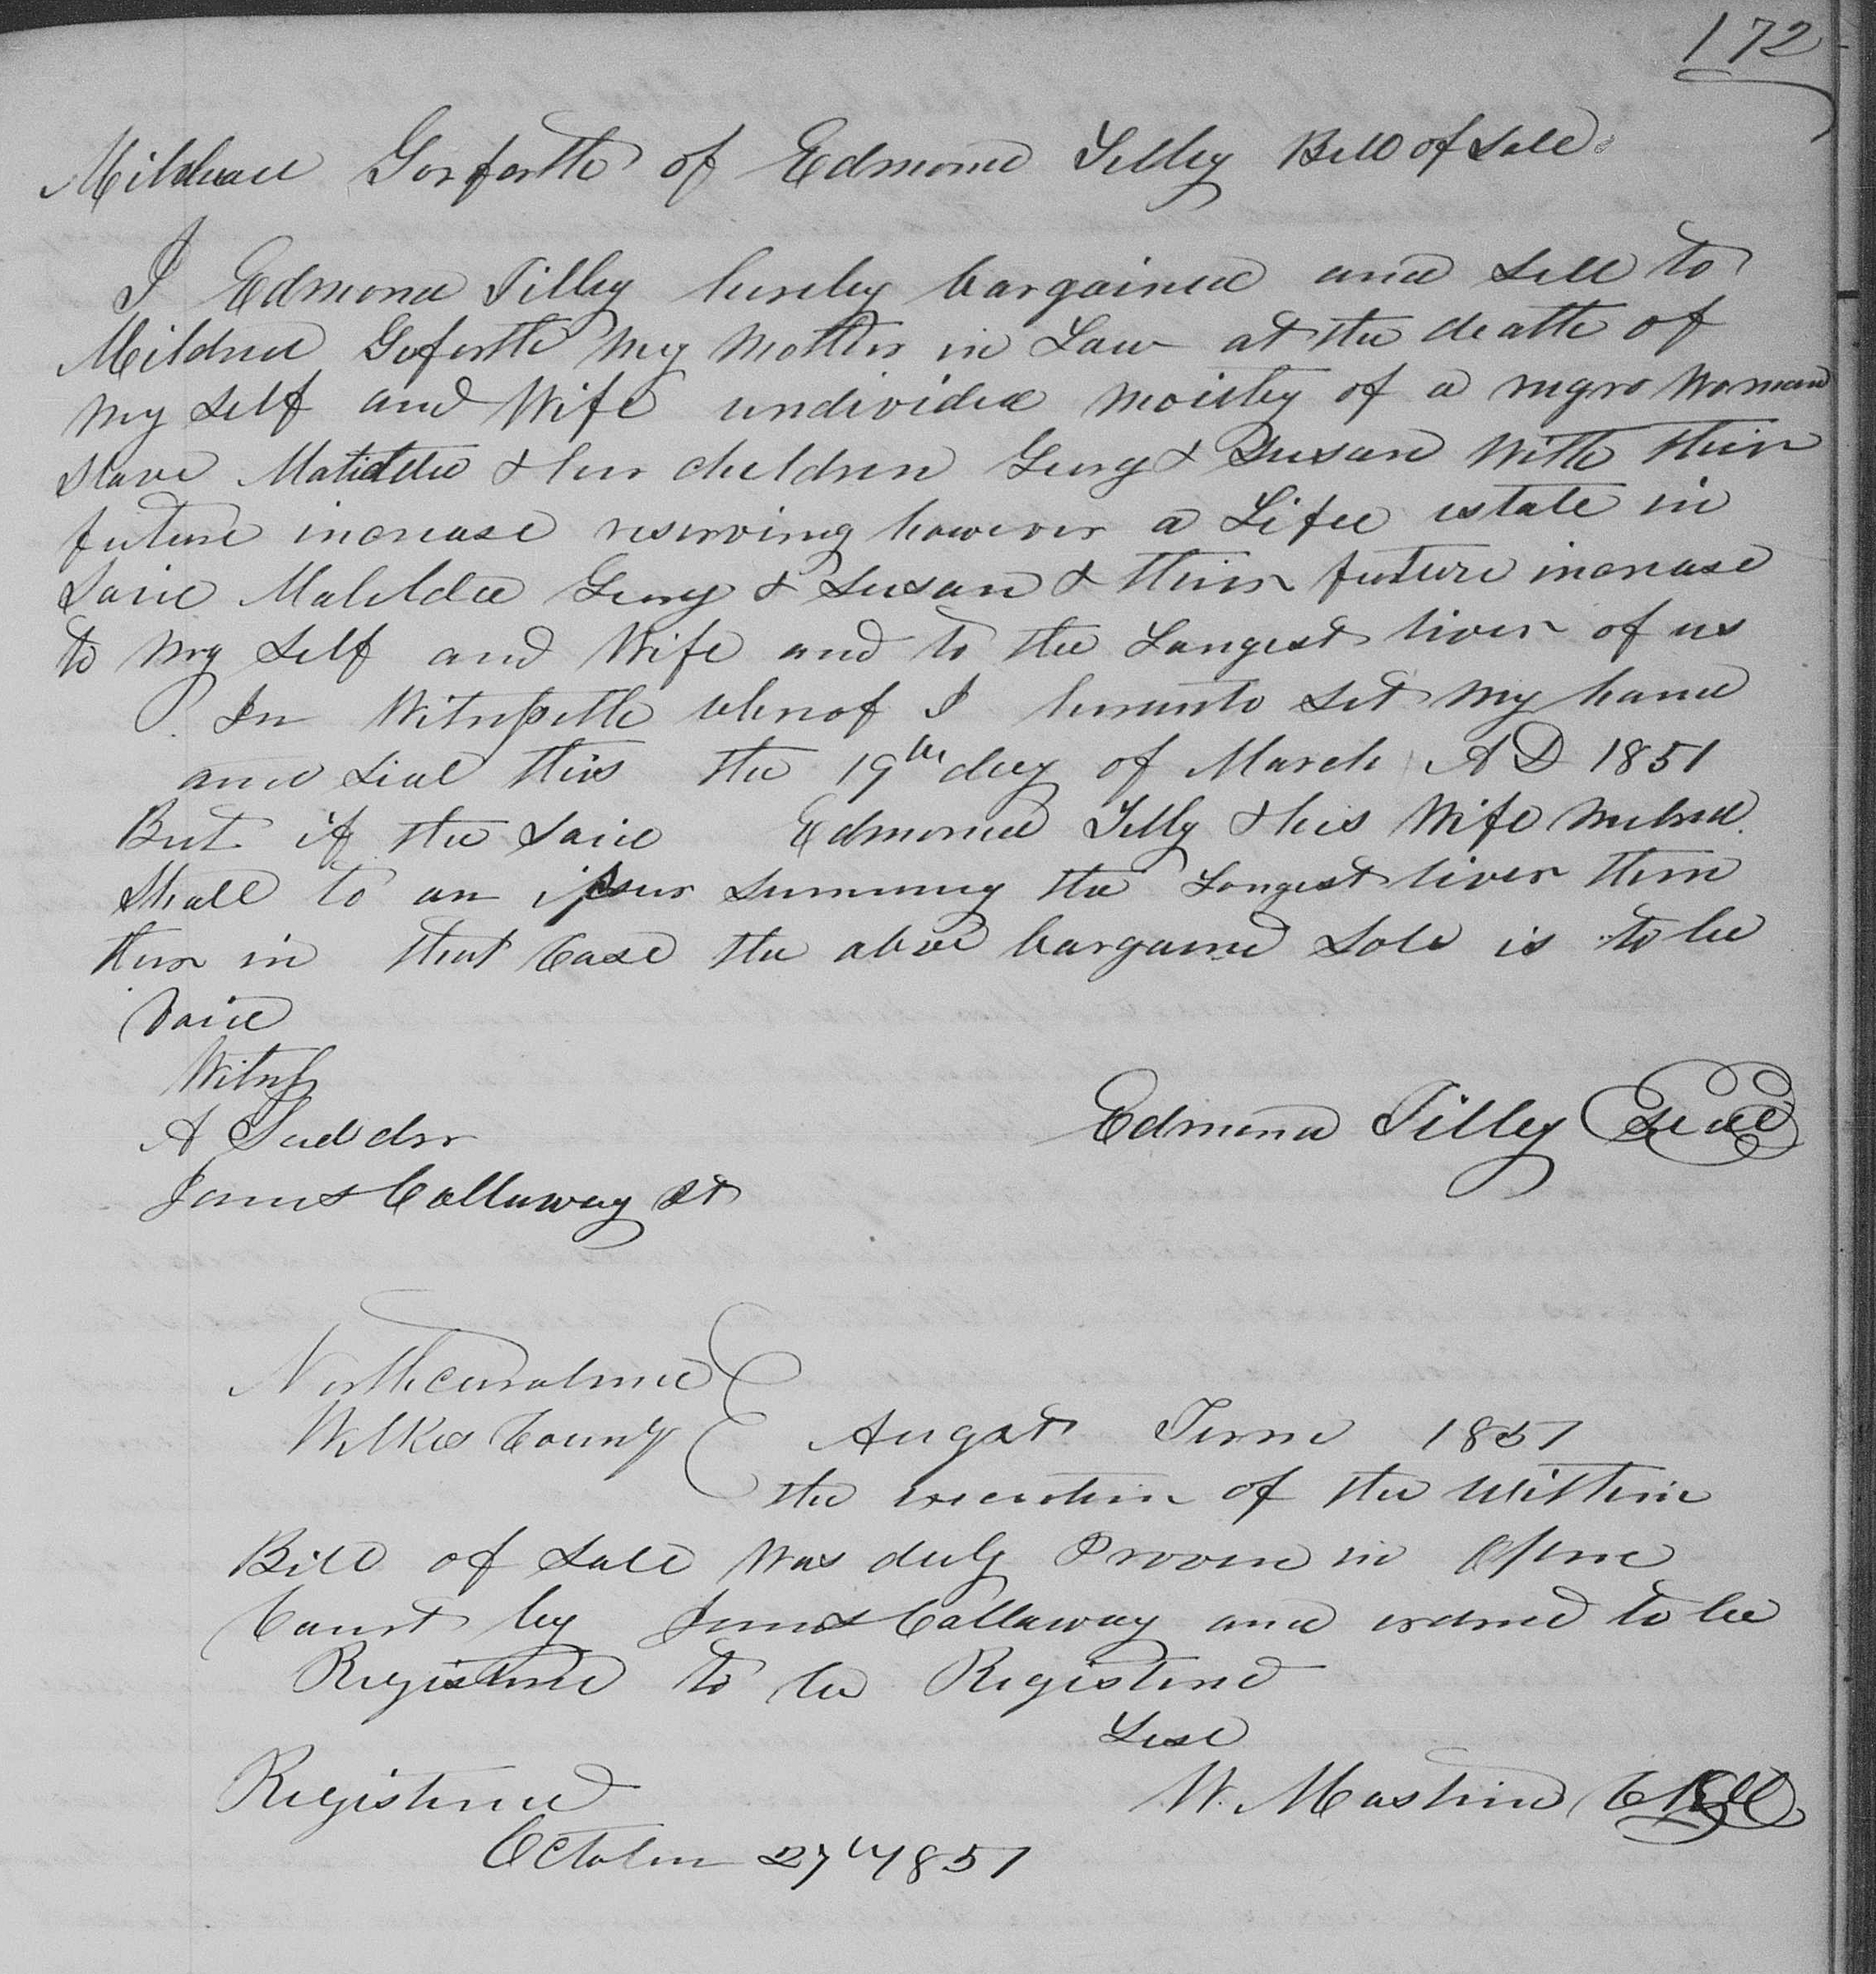 172
Mildred Gorforth of Edmond Tilley Bill of Sale
I Edmond Tilley hereby bargained and sell to
Mildred Goforth my mother in Law at the death of
my self and Wife undivided moiety of a negro Woman
slave Matilda & her children Georg & Susan With their
future increase reserving however a Life estate in
Said Matilda Georg & Susan & their future increase
to my Self and Wife and to the Longest liver of us
In Witnesseth wherof I hereunto set my hand
and Seal this the 19th day of March AD 1851
But if the said Edmond Tilly & his Wife
Shall to an issue the Longest liver them
then in that Case the above bargained Sole is to be
Void
Witness
A
James Callaway
Edmond Tilley Seal
North Carolina
Wilkes County August Term 1851
the execution of the Within
Bill of Sale Was duly Proven in Open
Court by James Callaway and ordred to be
Registered to be Registered
Test
W. Mastin Clk
Registered
October 27th 1851